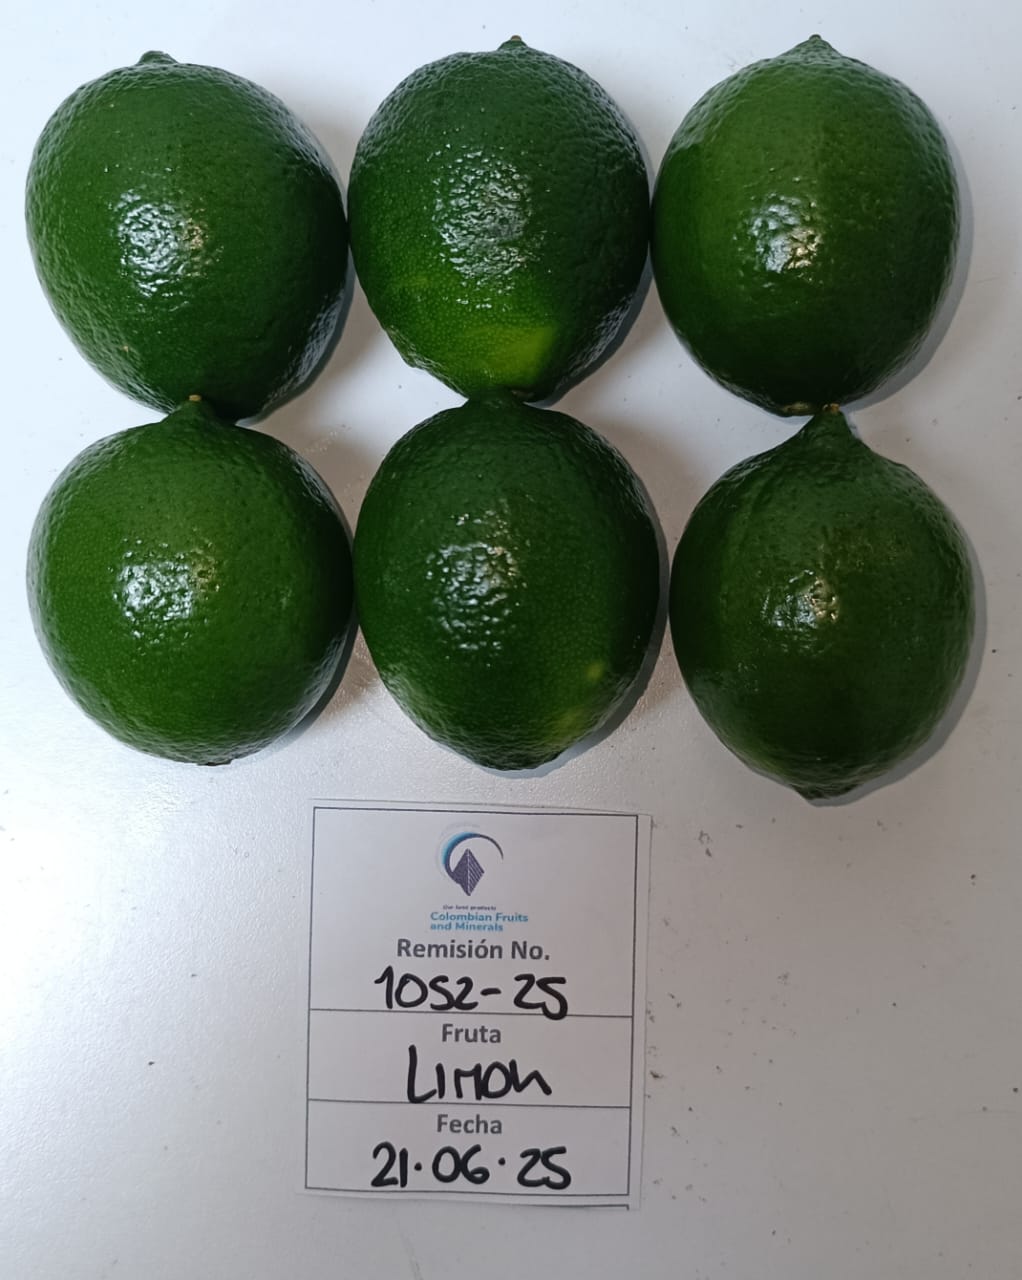 Our best products
Colombian Fruits
and Minerals
Remisión No.
1052-25
Fruta
Limon
Fecha
21.06.25